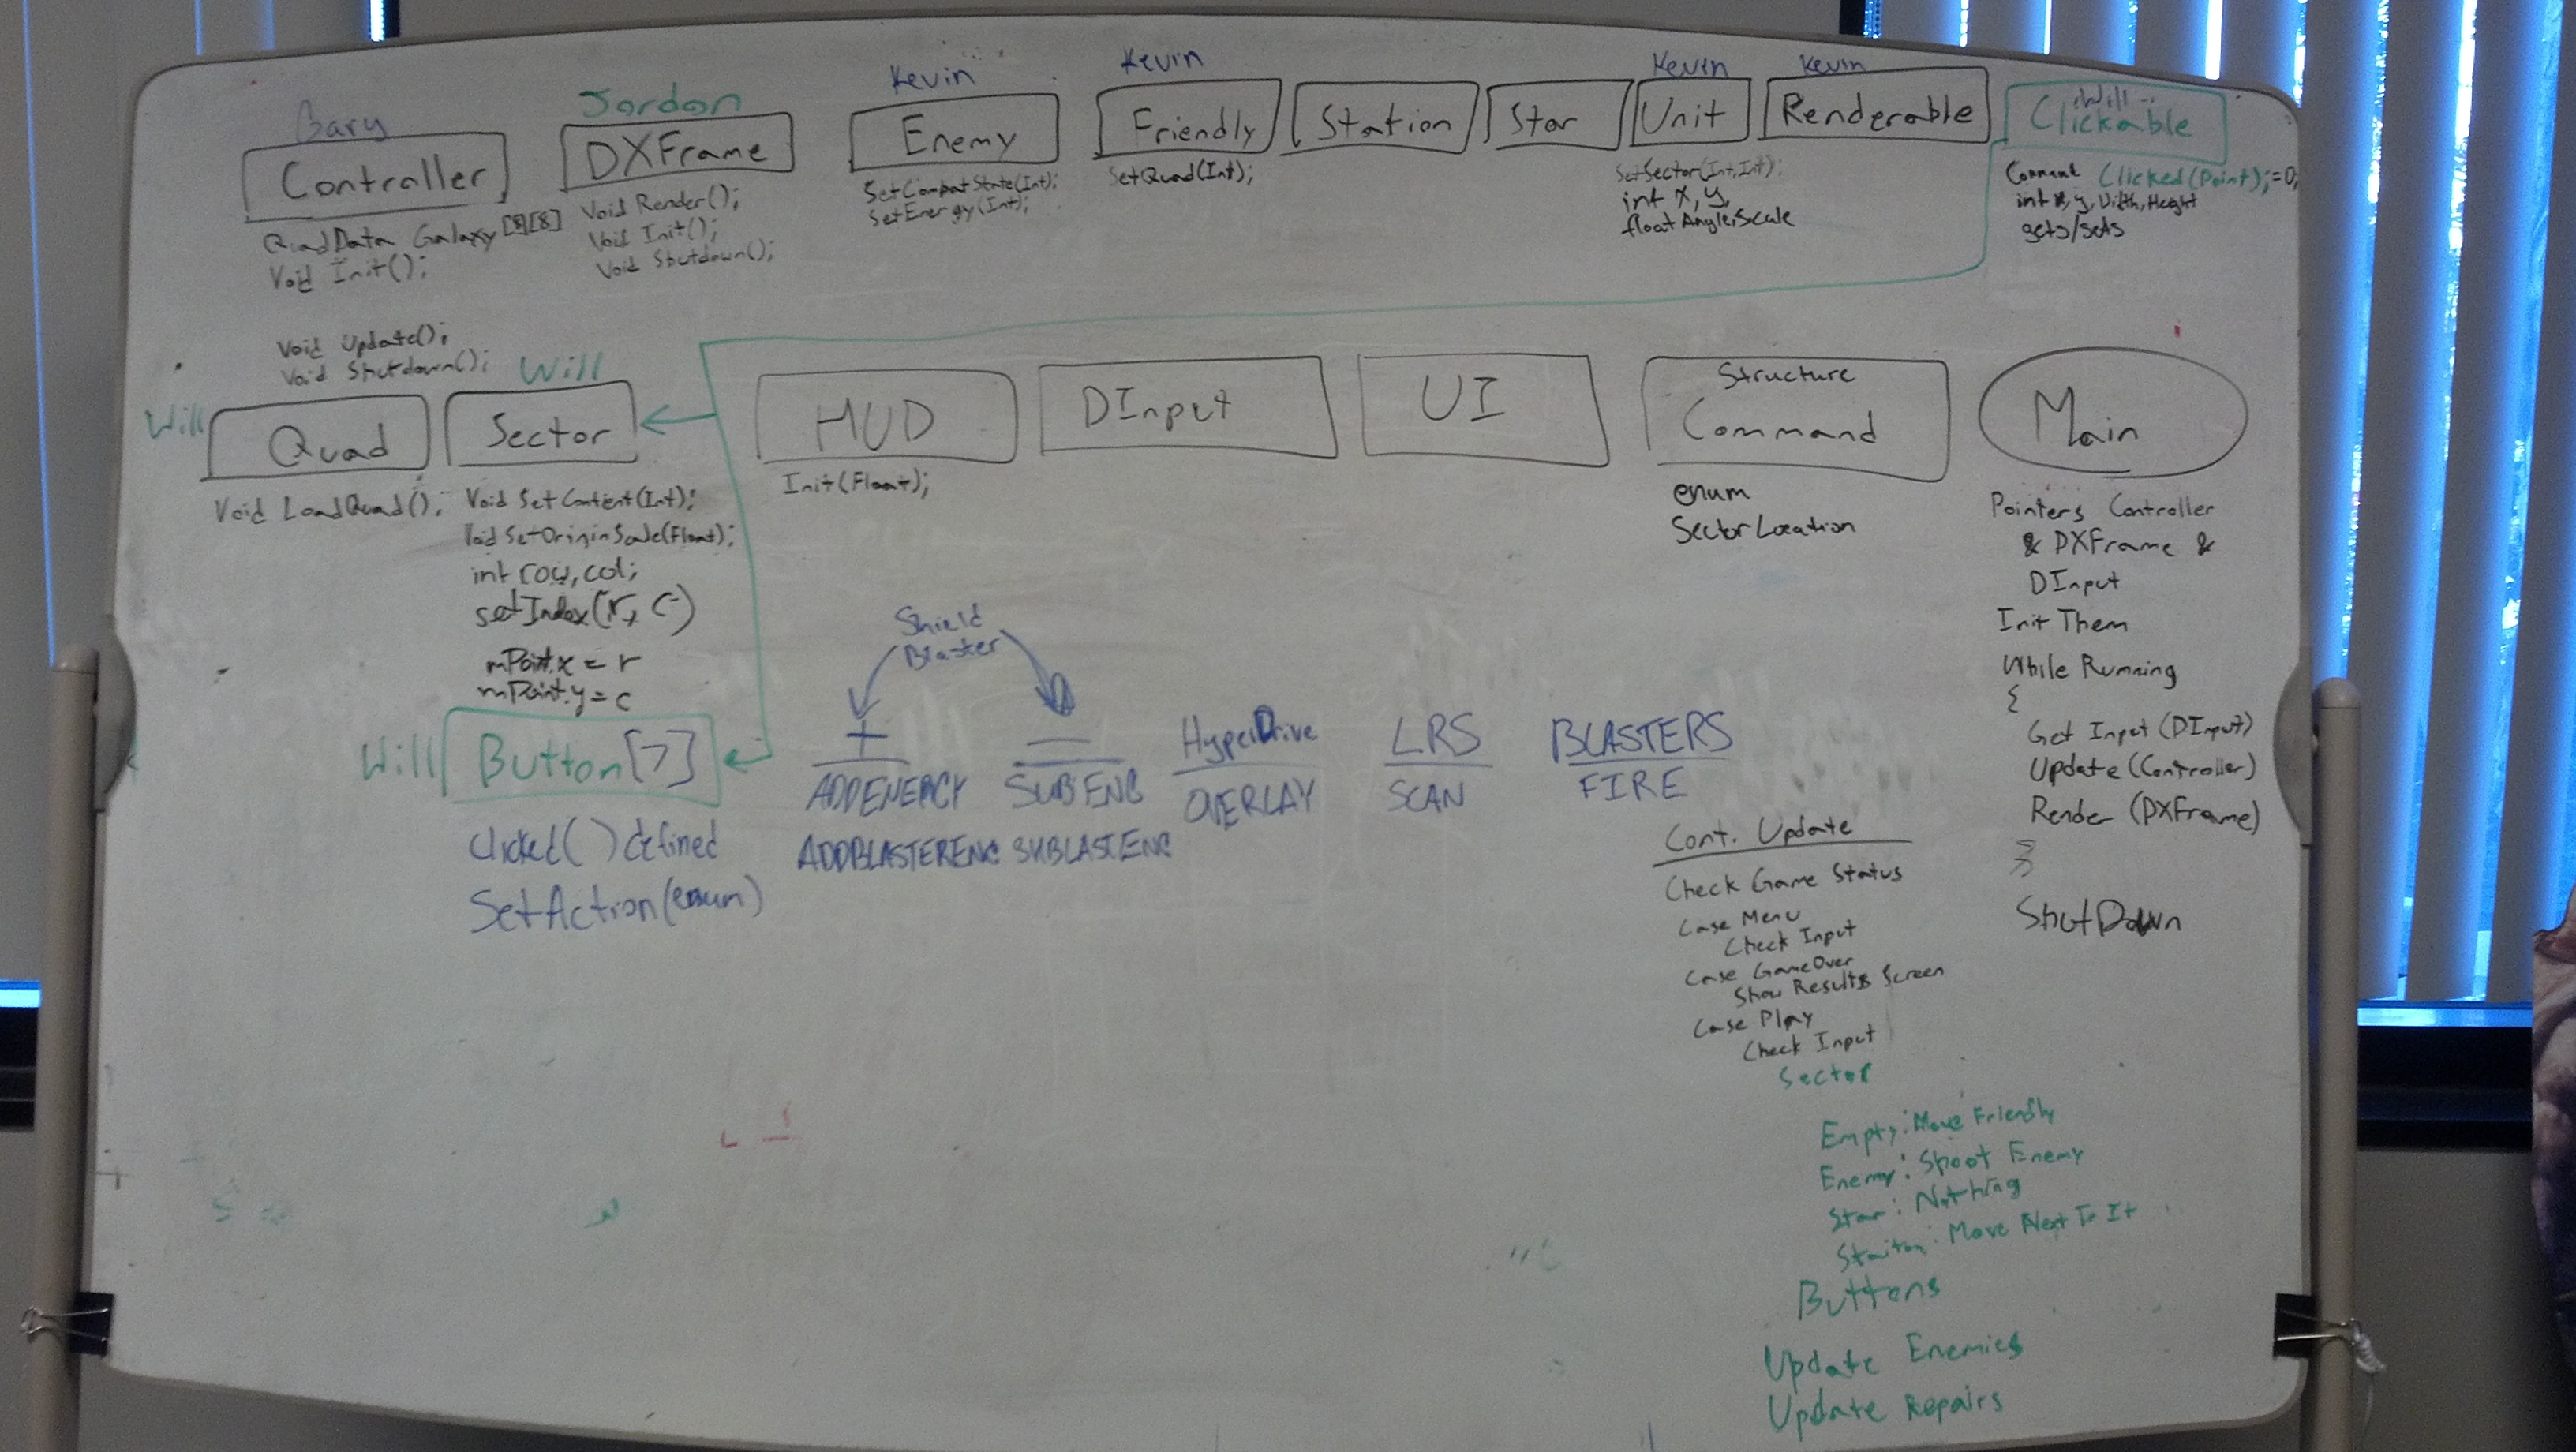 Gary
Controller
QuadData Galaxy[8][8]
Void Init();
Void Update();
Void Shutdown();
Jordon
DXFrame
Void Render();
Void Init();
Void Shutdown();
Kevin
Enemy
SetCombatState(Int);
SetEnergy(Int);
Kevin
Friendly
SetQuad(Int);
Station
Star
Kevin
Unit
SetSector(Int,Int);
int x, y,
float Angle,Scale
Kevin
Renderable
Will
Clickable
Command Clicked(Point);=0;
int x, y, Width, Height
gets/sets
Will
Quad
Void LoadQuad();
Will
Sector
Void SetContent(Int);
Void SetOriginScale(Float);
int row, col;
setIndex(r, c)
mPoint.x = r
mPoint.y = c
HUD
Init(Float);
DInput
UI
Structure
Command
enum
Sector Location
Main
Pointers Controller
& DXFrame &
DInput
Init Them
While Running
{
Get Input (DInput)
Update (Controller)
Render (DXFrame)
}
ShutDown
Will
Button[7]
Clicked() defined
SetAction(enum)
Shield
Blaster
+
ADDENERGY
ADDBLASTERENG
—
SUBENG
SUBLASTENG
HyperDrive
OVERLAY
LRS
SCAN
BLASTERS
FIRE
Cont. Update
Check Game Status
Case Menu
Check Input
Case GameOver
Show Results Screen
Case Play
Check Input
Sector
Empty: Move Friendly
Enemy: Shoot Enemy
Star: Nothing
Staiton: Move Next To It
Buttons
Update Enemies
Update Repairs